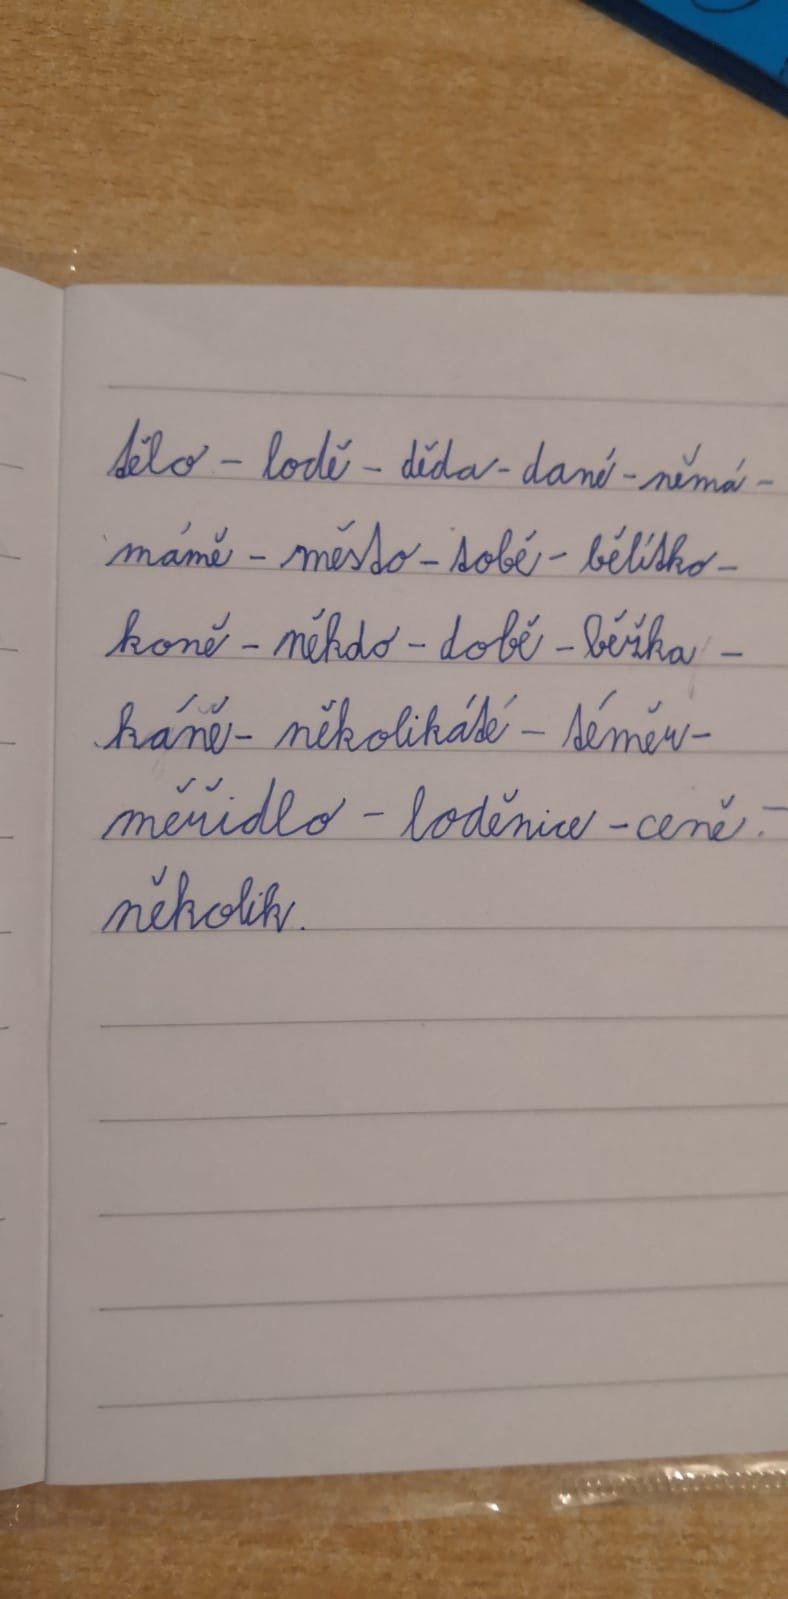 tělo - lodě - děda - dané - němá -
mámě - město - tobě - bělítko -
koně - někdo - době - běžka -
káně - několikáté - téměř -
měřidlo - loděnice - ceně -
několik.